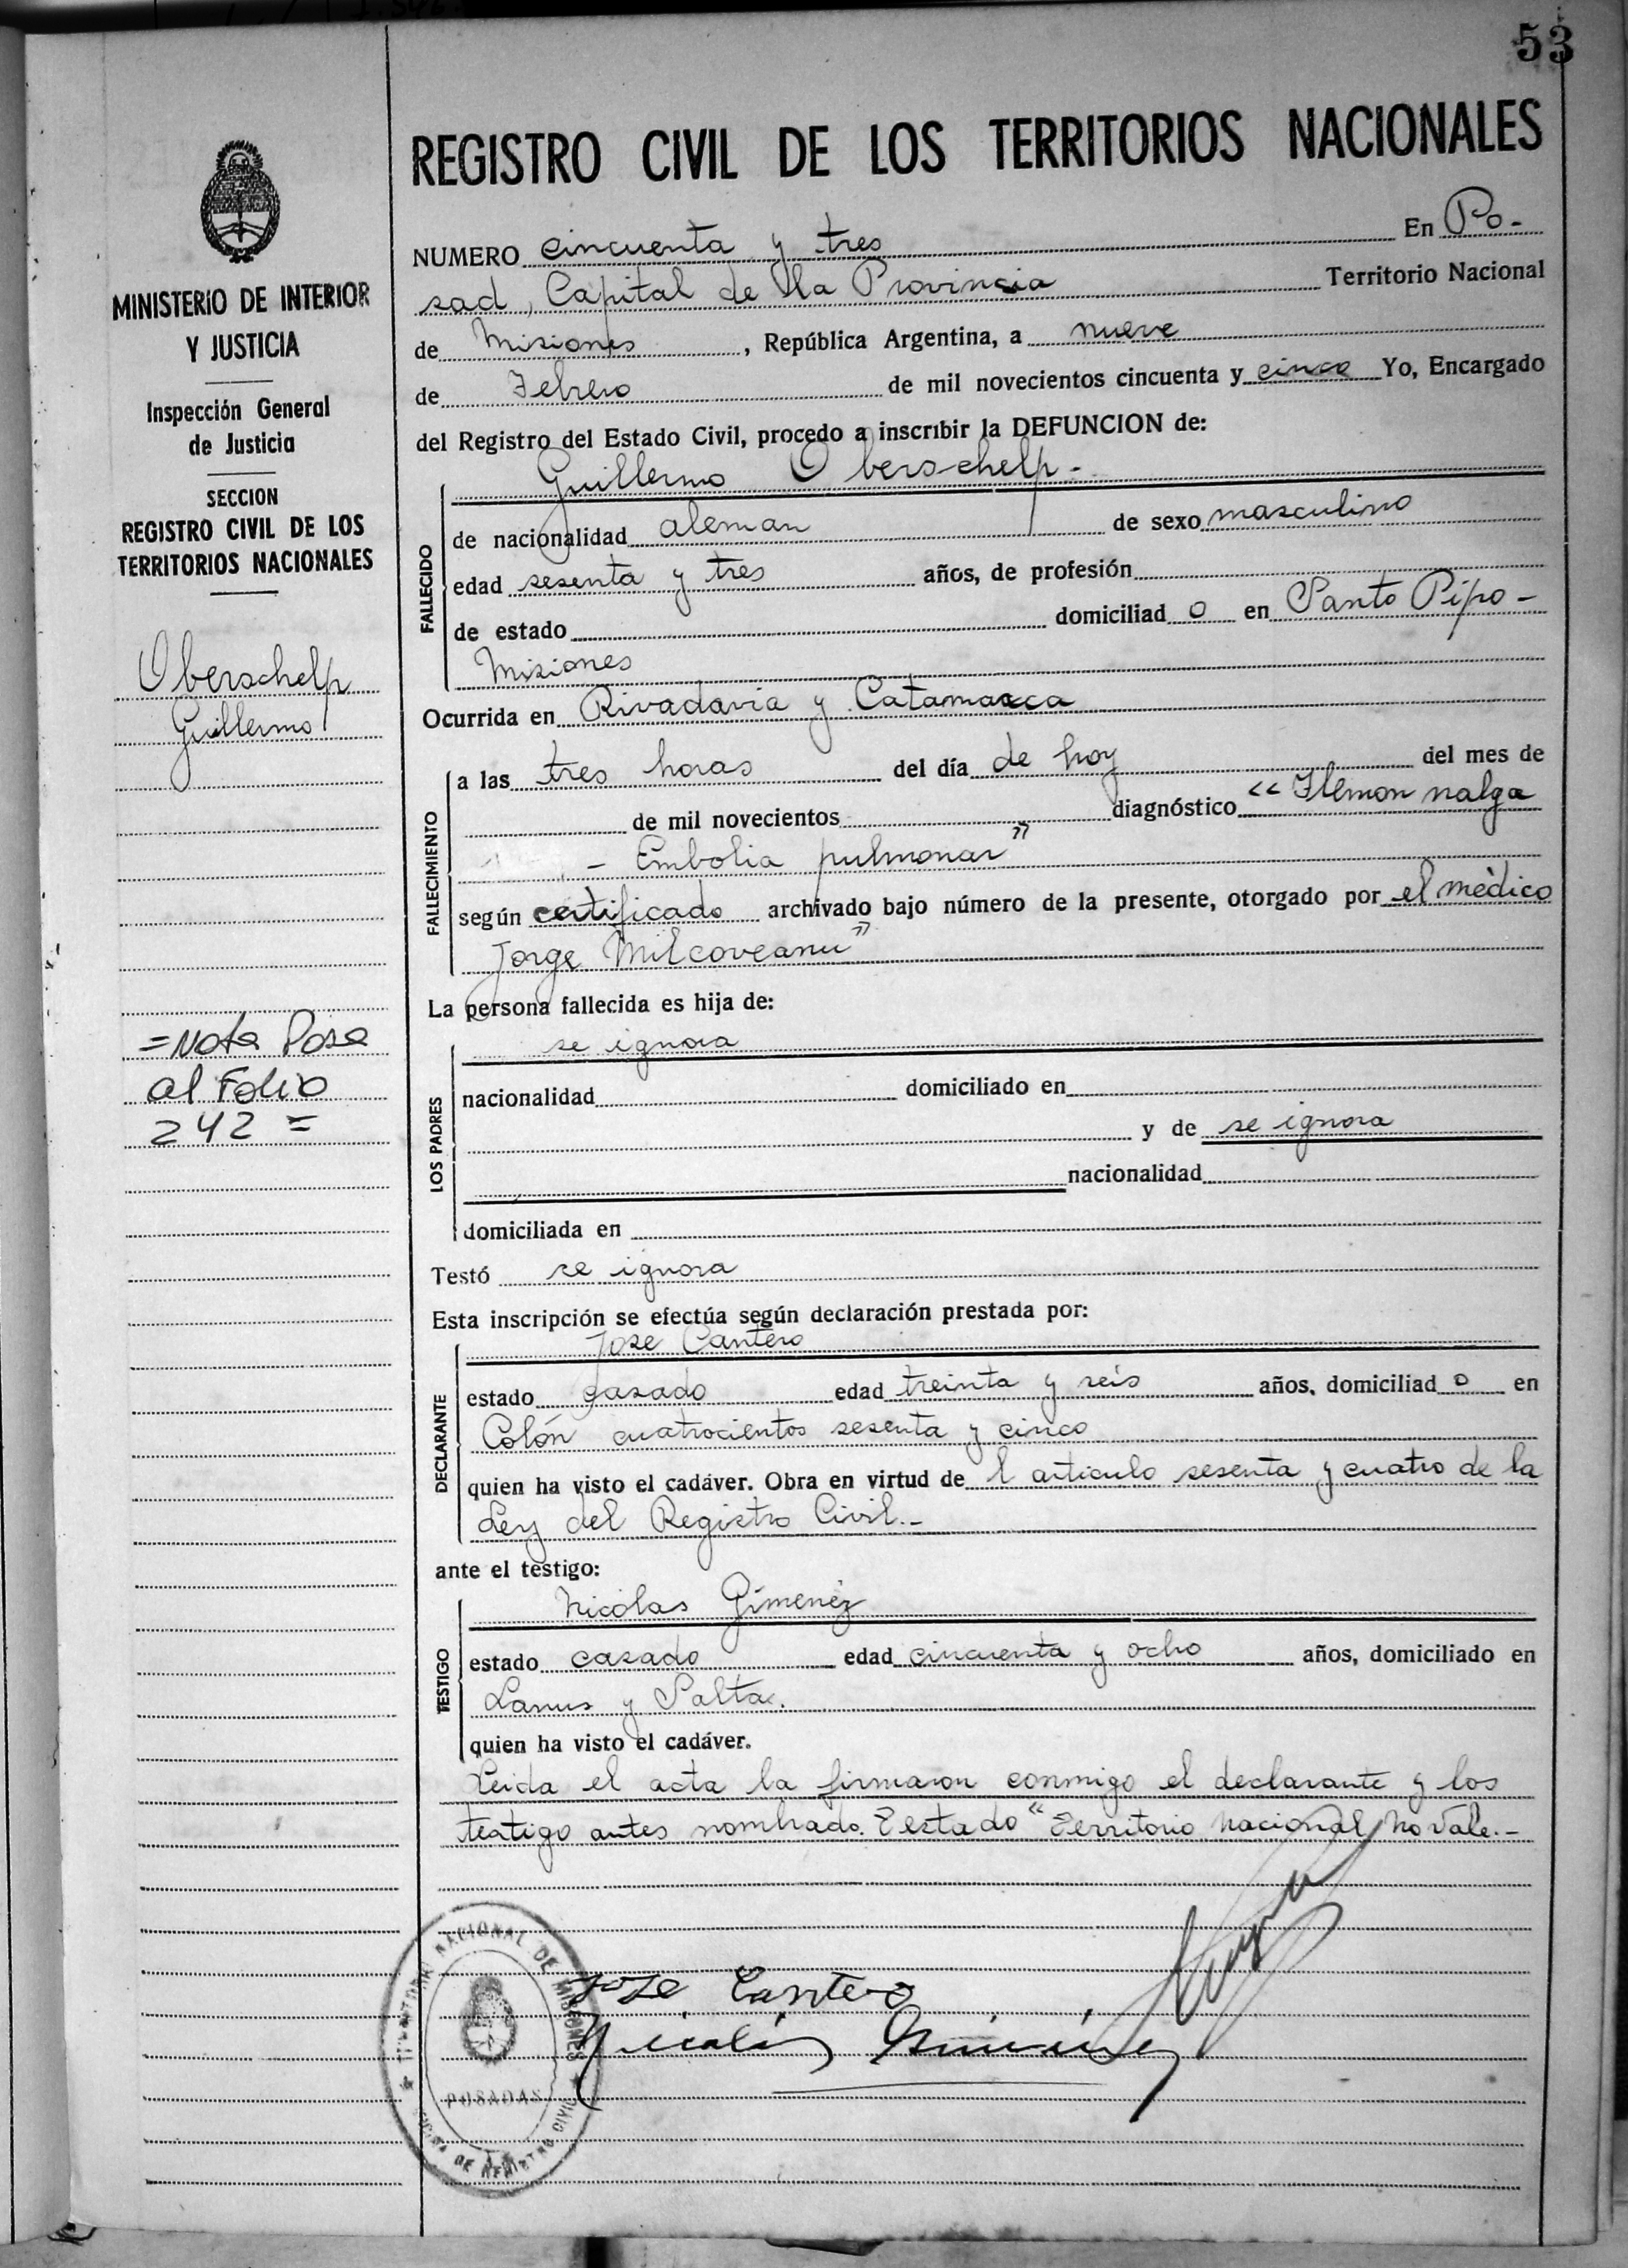 53
MINISTERIO DE INTERIOR
Y JUSTICIA
Inspección General
de Justicia
SECCION
REGISTRO CIVIL DE LOS
TERRITORIOS NACIONALES
Oberschelp
Guillermo
=Nota Pasa
al Folio
242 =
REGISTRO CIVIL DE LOS TERRITORIOS NACIONALES
NUMERO cincuenta y tres En Po-
sad, Capital de la Provincia Territorio Nacional
de Misiones, República Argentina, a nueve
de Febrero de mil novecientos cincuenta y cinco Yo, Encargado
del Registro del Estado Civil, procedo a inscribir la DEFUNCION de:
Guillermo Oberschelp-
FALLECIDO
de nacionalidad aleman de sexo masculino
edad sesenta y tres años, de profesión
de estado domiciliad o en Santo Pipo-
Misiones
Ocurrida en Rivadavia y Catamarca
FALLECIMIENTO
a las tres horas del día de hoy del mes de
de mil novecientos diagnóstico "Flemon nalga
- Embolia pulmonar"
según certificado archivado bajo número de la presente, otorgado por el médico
Jorge Milcoveanu"
La persona fallecida es hija de:
LOS PADRES
se ignora
nacionalidad domiciliado en
y de se ignora
nacionalidad
domiciliada en
Testó se ignora
Esta inscripción se efectúa según declaración prestada por:
DECLARANTE
Jose Cantero
estado casado edad treinta y seis años, domiciliad o en
Colón cuatrocientos sesenta y cinco
quien ha visto el cadáver. Obra en virtud de l articulo sesenta y cuatro de la
Ley del Registro Civil.-
ante el testigo:
TESTIGO
Nicolas Gimenez
estado casado edad cincuenta y ocho años, domiciliado en
Lanus y Salta.
quien ha visto el cadáver.
Leida el acta la firmaron conmigo el declarante y los
testigo antes nombrado. Testado "Territorio Nacional no vale.-
Jose Cantero
Nicolás Giménez
TERRITORIO NACIONAL DE MISIONES
POSADAS
OFICINA DE REGISTRO CIVIL